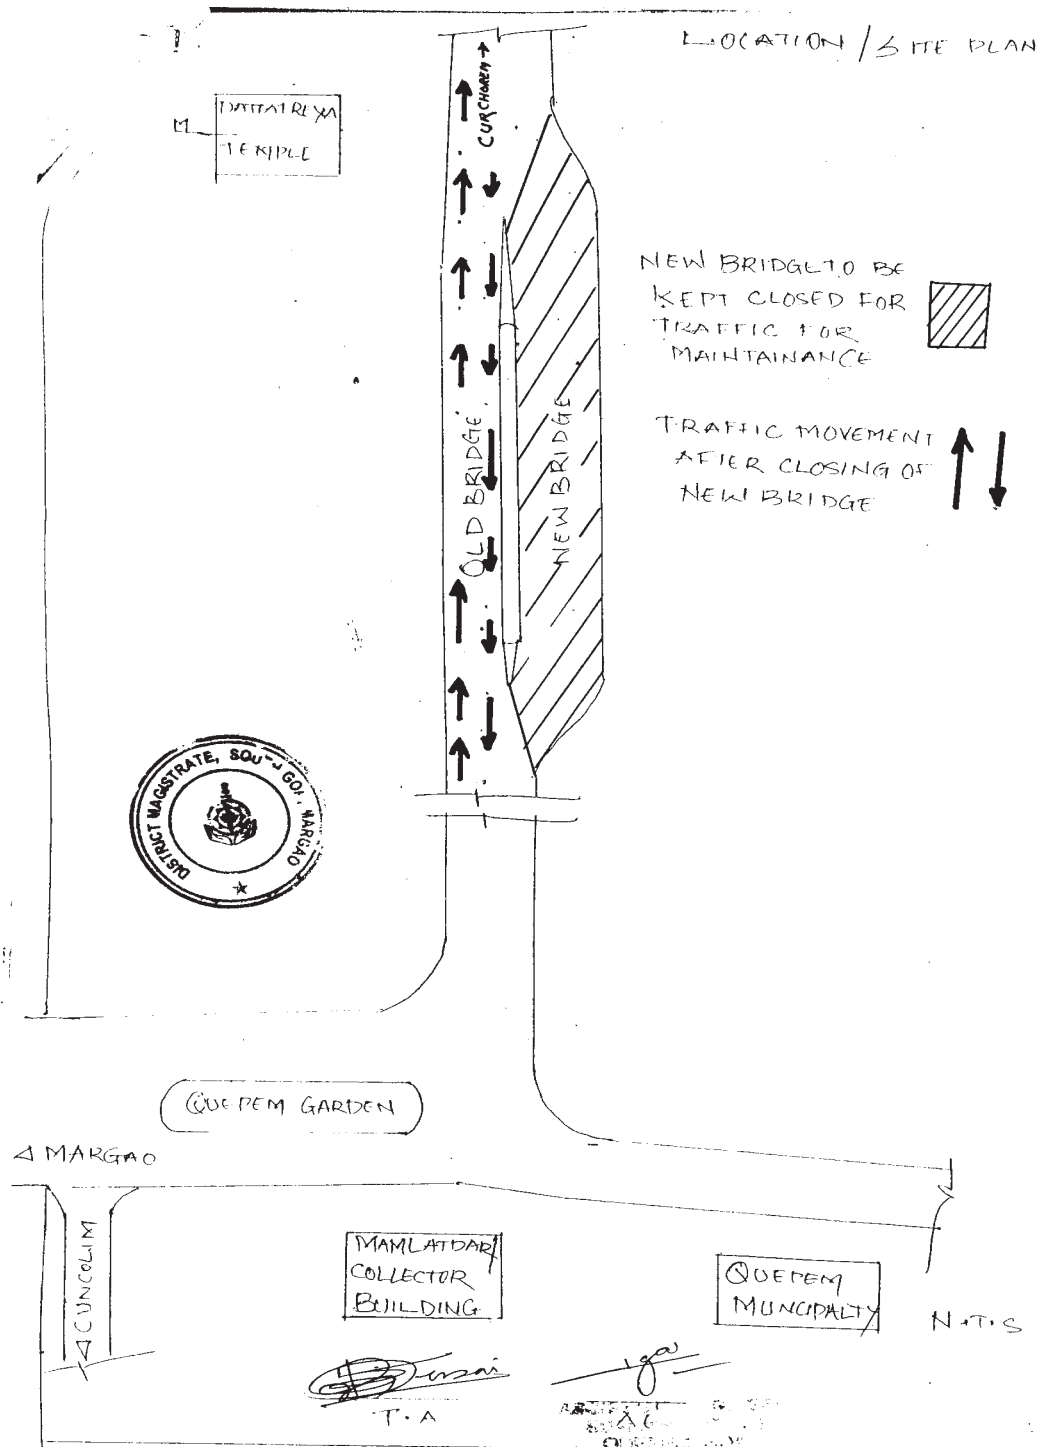 LOCATION / SITE PLAN
CURCHOREM →
DATTATREYA
TEMPLE
NEW BRIDGE TO BE
KEPT CLOSED FOR
TRAFFIC FOR
MAINTAINANCE
TRAFFIC MOVEMENT
AFTER CLOSING OF
NEW BRIDGE
OLD BRIDGE
NEW BRIDGE
DISTRICT MAGISTRATE, SOUTH GOA, MARGAO
QUEPEM GARDEN
MARGAO
CUNCOLIM
MAMLATDAR/
COLLECTOR
BUILDING
QUEPEM
MUNCIPALTY
N.T.S
T.A